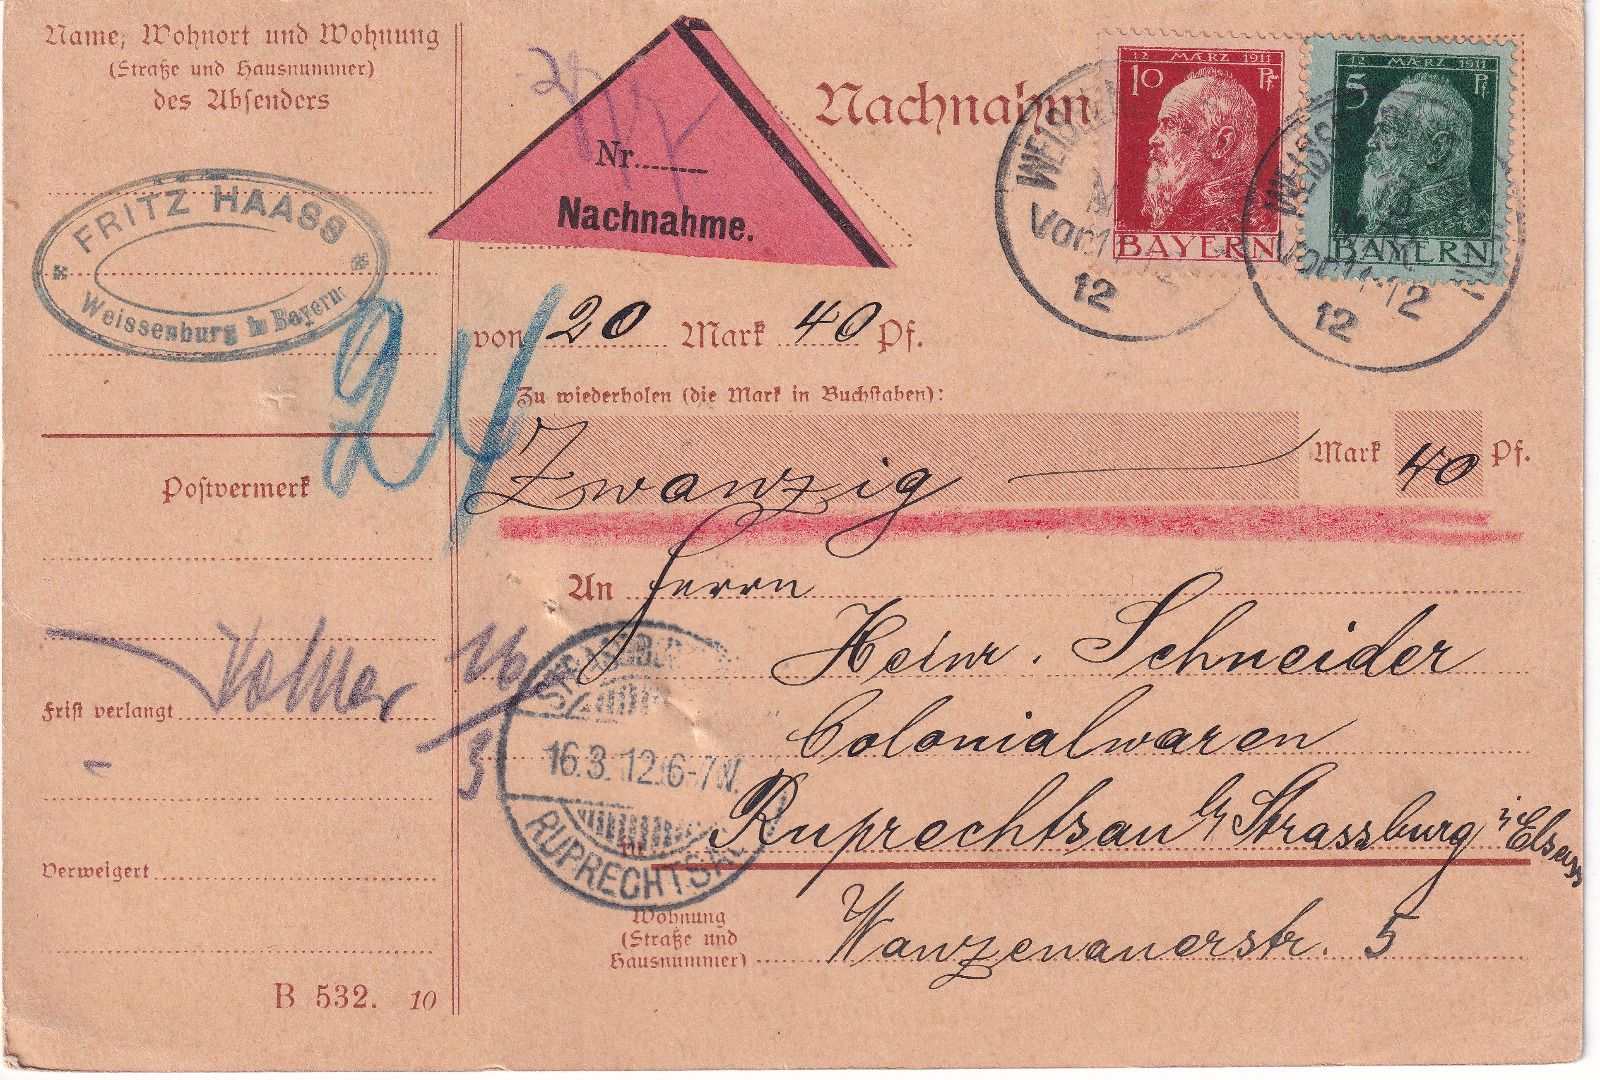 Name, Wohnort und Wohnung
(Straße und Hausnummer)
des Absenders
FRITZ HAASS
Weissenburg in Bayern
Postvermerk
Frist verlangt
16/3
Verweigert
B 532. 10
Nr.
Nachnahme.
Nachnahm
12 MÄRZ 1911
10 Pf
BAYERN
12 MÄRZ 1911
5 Pf
BAYERN
Vor
12
Vor 11-12
12
von 20 Mark 40 Pf.
Zu wiederholen (die Mark in Buchstaben):
Zwanzig Mark 40 Pf.
An Herrn
Heinr. Schneider
Colonialwaren
Ruprechtsau b/ Strassburg i/Elsass
Wohnung
(Straße und
Hausnummer)
Wanzenauerstr. 5
16.3.12.6-7N.
RUPRECHTSAU